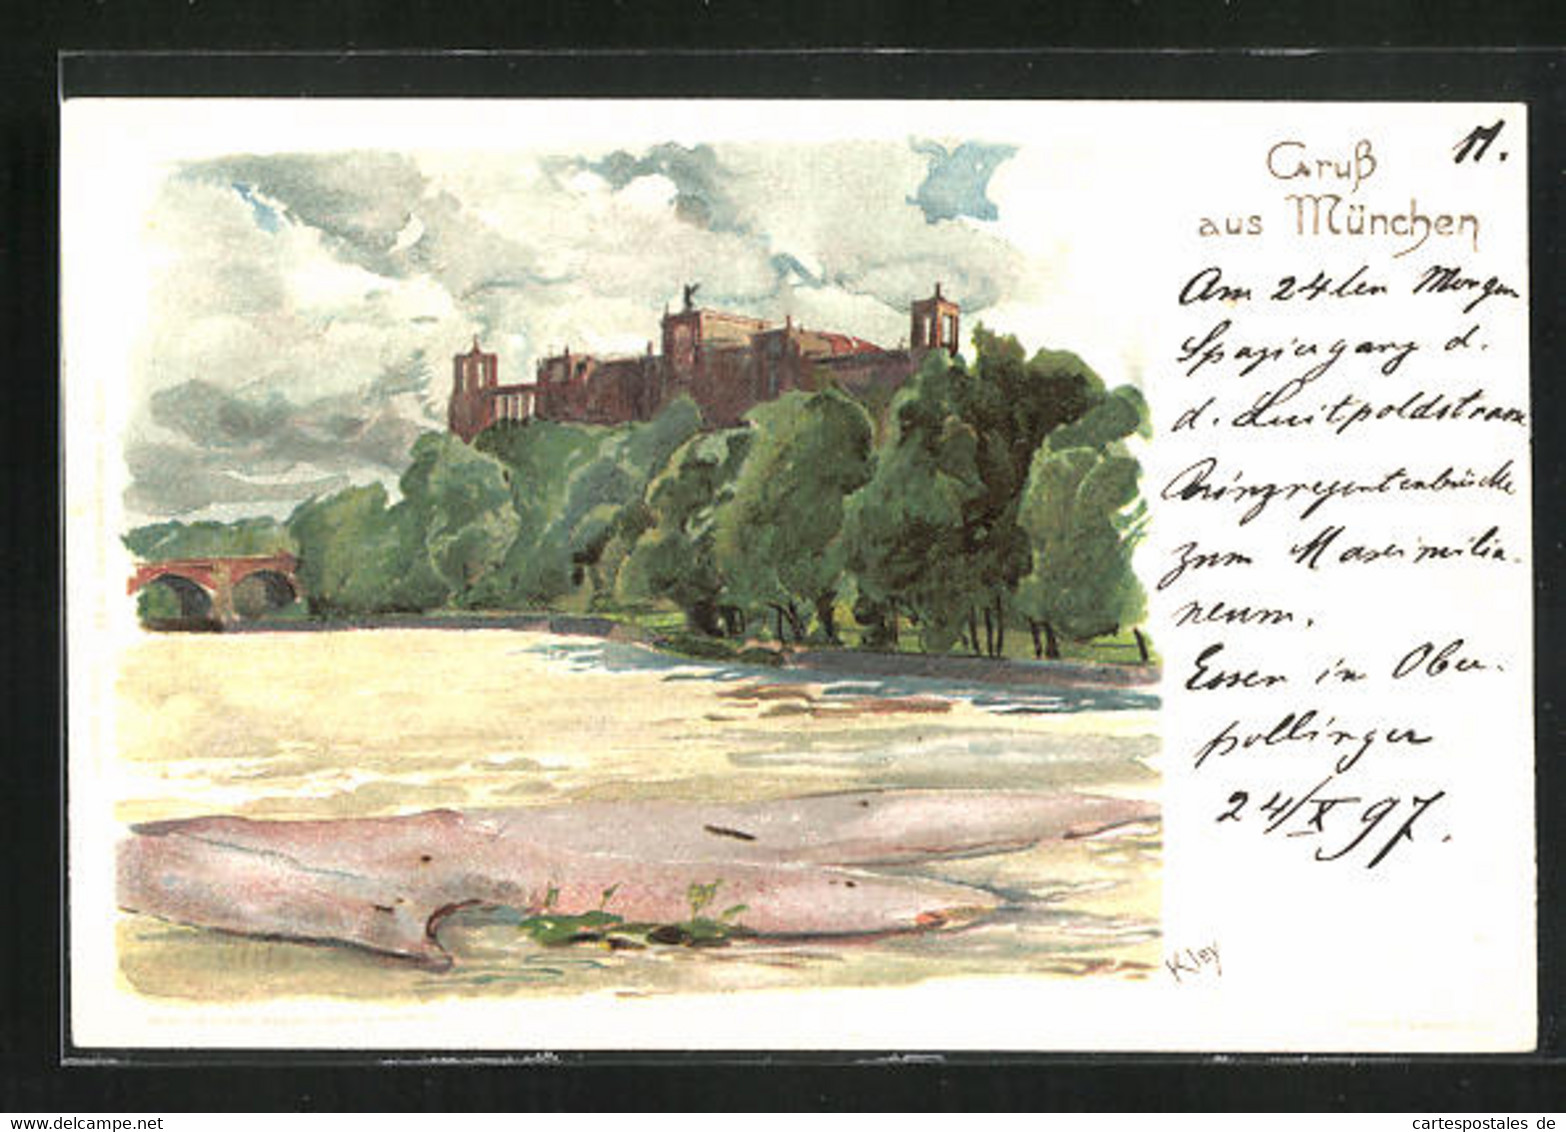 Gruß
11.
aus München
Am 24ten Morgen
Spaziergang d.
d. Luitpoldstrasse
Prinzregentenbrücke
zum Maximilia-
neum.
Essen in Ober-
pollinger
24/X 97.
Kley
cartespostales de